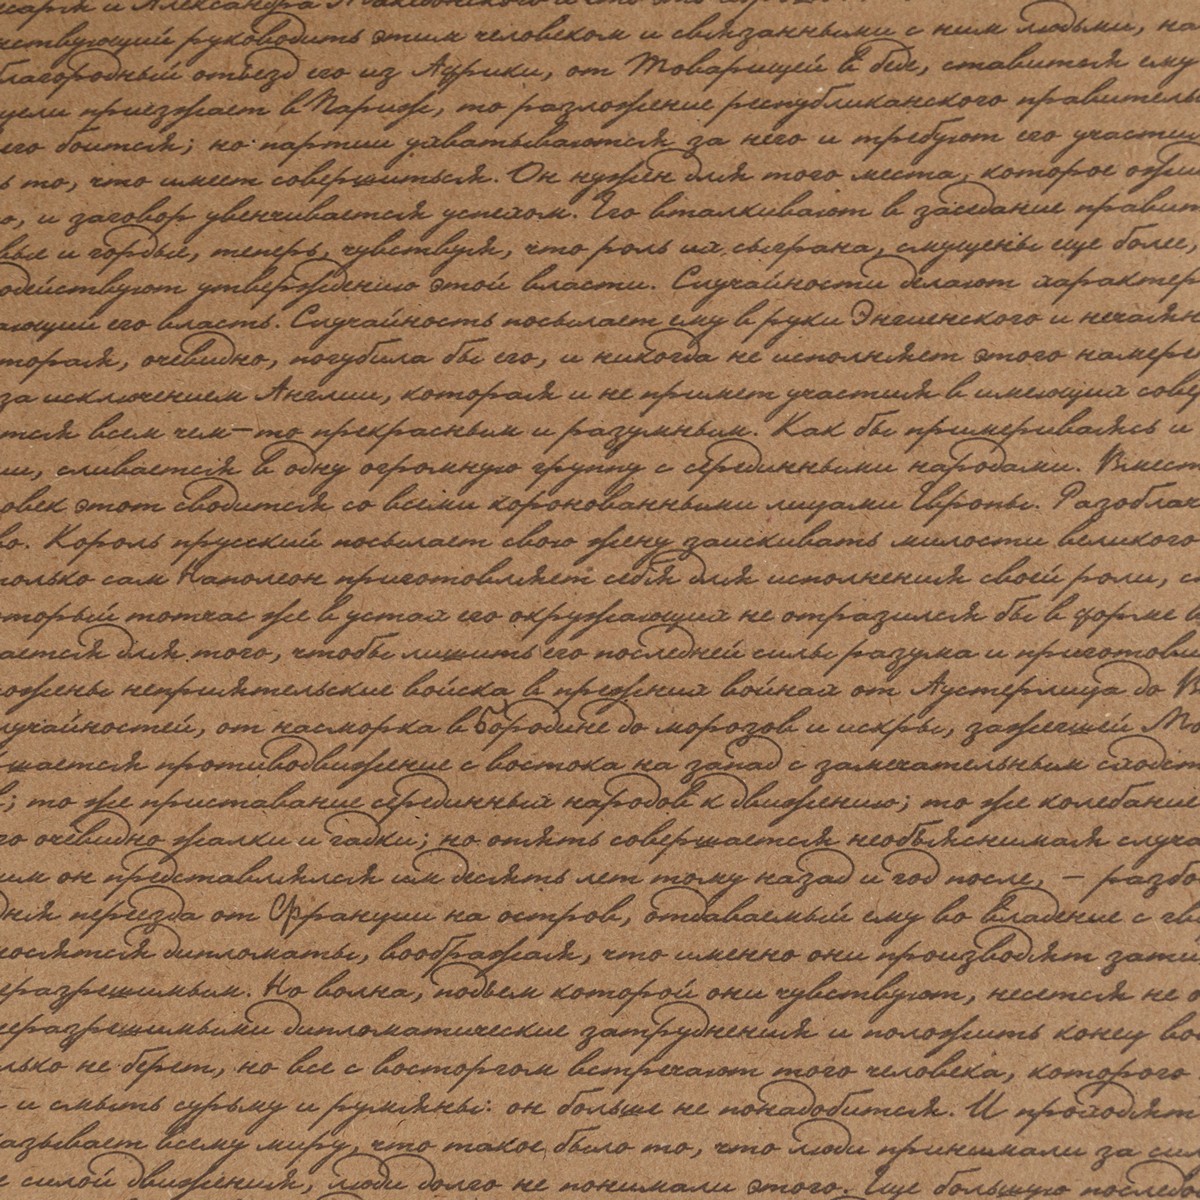 и Александра Македонского и что это
руководить этим человеком и связанными с ним людьми, на
благородный отъезд его из Африки, от товарищей в беде, ставится ему
цели приезжает в Париж, то разложение республиканского правитель
его боится; но партии ухватываются за него и требуют его участия
ь то, что имеет совершиться. Он нужен для того места, которое ожи
о, и заговор увенчивается успехом. Его вталкивают в заседание правит
вые и гордые, теперь, чувствуя, что роль их сыграна, смущены еще более,
одействуют утверждению этой власти. Случайности делают характер
ающий его власть. Случайность посылает ему в руки Энгиенского и нечаян
торая, очевидно, погубила бы его, и никогда не исполняет этого намере
за исключением Англии, которая и не примет участия в имеющих сове
тся всем чем-то прекрасным и разумным. Как бы примериваясь и
ии, сливается в одну огромную группу с серединными народами. Вмест
овек этот сводится со всеми коронованными лицами Европы. Разобла
во. Король прусский посылает свою жену заискивать милости великого
только сам Наполеон приготовляет себя для исполнения своей роли, с
оторый тотчас же в устах его окружающих не отразился бы в форме
ается для того, чтобы лишить его последней силы разума и приготови
ожены неприятельские войска в прежних войнах от Аустерлица до В
лучайностей, от насморка в Бородине до морозов и искры, зажегшей Мо
шается противодвижение с востока на запад с замечательным сходст
в; то же приставание серединных народов к движению; то же колебание
го очевидно жалки и гадки; но опять совершается необъяснимая случа
им он представлялся им десять лет тому назад и год после, — разбо
дня переезда от Франции на остров, отдаваемый ему во владение с гв
носятся дипломаты, воображая, что именно они производят зати
еразрешимым. Но волна, подъем которой они чувствуют, несется не
неразрешимыми дипломатические затруднения и положить конец во
лько не берет, но все с восторгом встречают того человека, которого
и смыть сурьму и румяны: он больше не понадобится. И проходят
казывает всему миру, что такое было то, что люди принимали за сил
е силой движения, люди долго не понимали этого. Еще большую последо